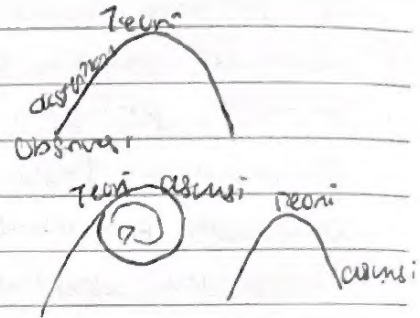 Teori
Observasi
Teori asumsi
Teori
asumsi